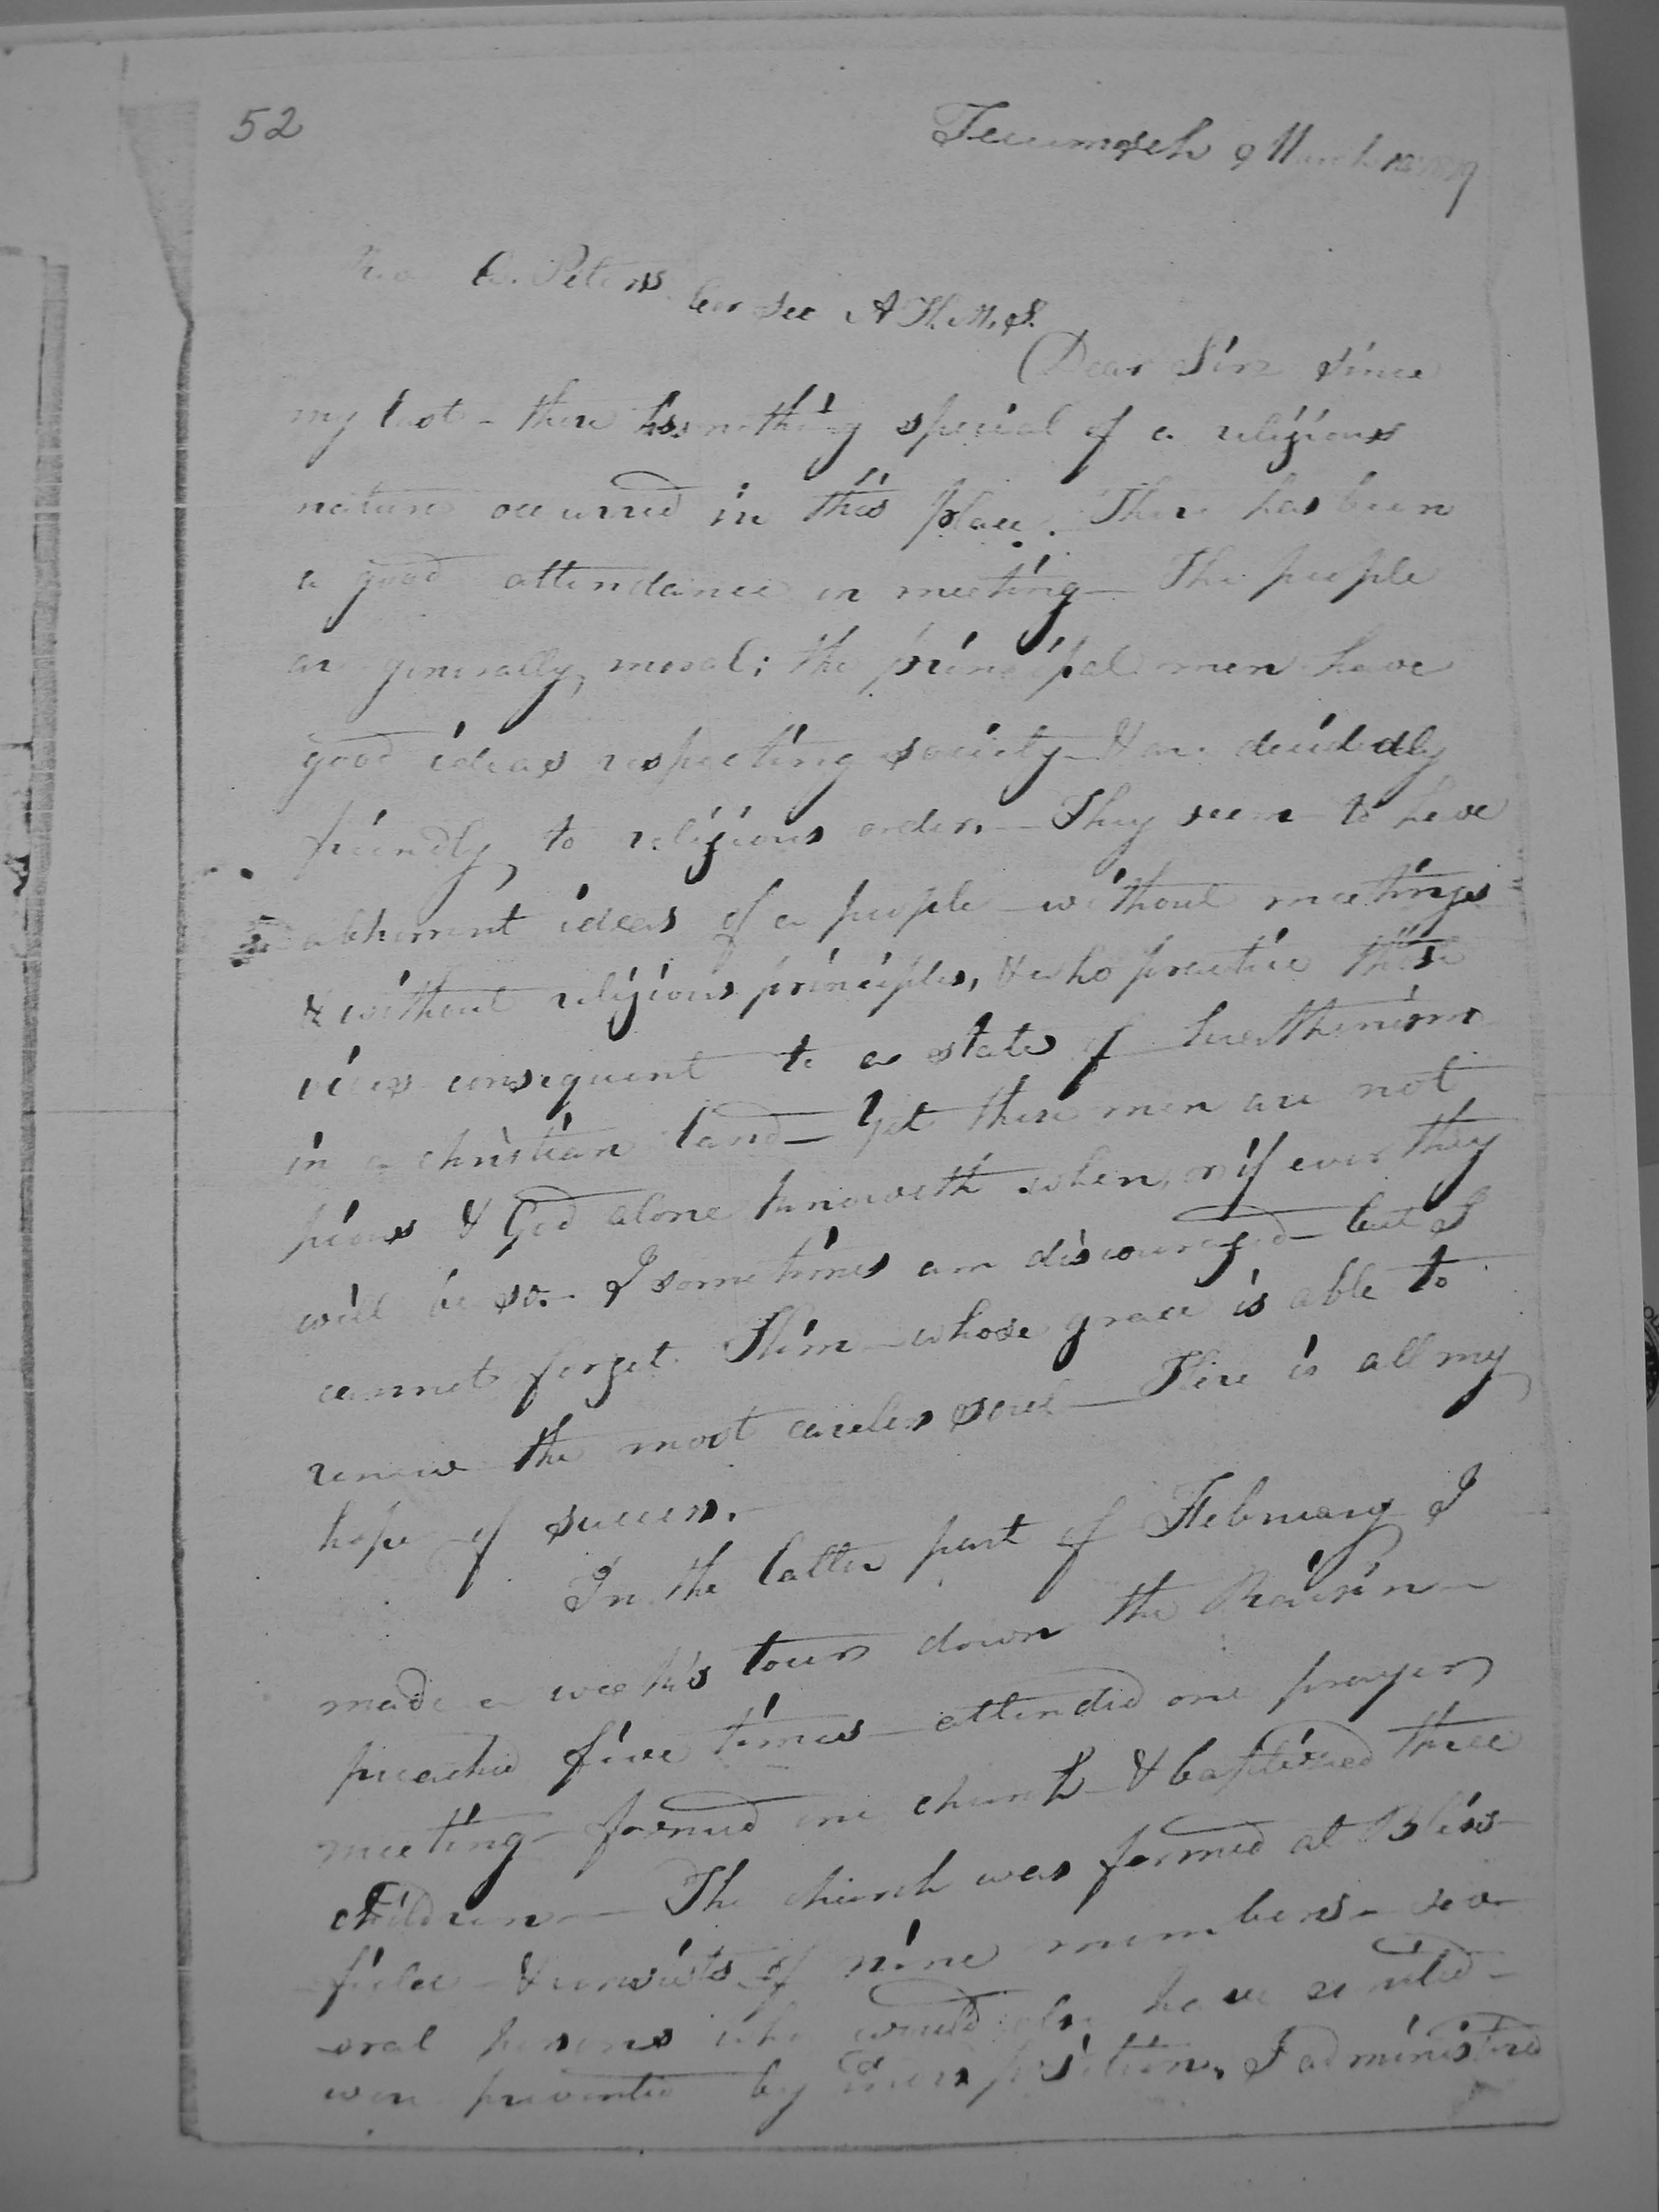 52
Tecumseh 9 March
A. Peters
Cor Sec A. H. M. S.
Dear Sir since
my last - there has nothing special of a religious
nature occurred in this place. There has been
a good attendance in meeting - The people
are generally moral; the principal men have
good ideas respecting society - & are decidedly
friendly, to religious order. - They seem to have
abhorrent ideas of a people - without meetings
& without religious principles, & who practice those
vices consequent to a state of heathenism
in a christian land - Yet these men are not
pious & God alone knoweth when, or if ever they
will be so. - I sometimes am discouraged - but I
cannot forget Him - whose grace is able to
renew the most careless soul - Here is all my
hope of success. -
In the latter part of February I
made a week's tour down the Raisin -
preached five times - attended one prayer
meeting - formed one church - & baptized three
children - The church was formed at Bliss-
field - & consists of nine members - sev-
eral persons who would also have united -
were prevented by I administered